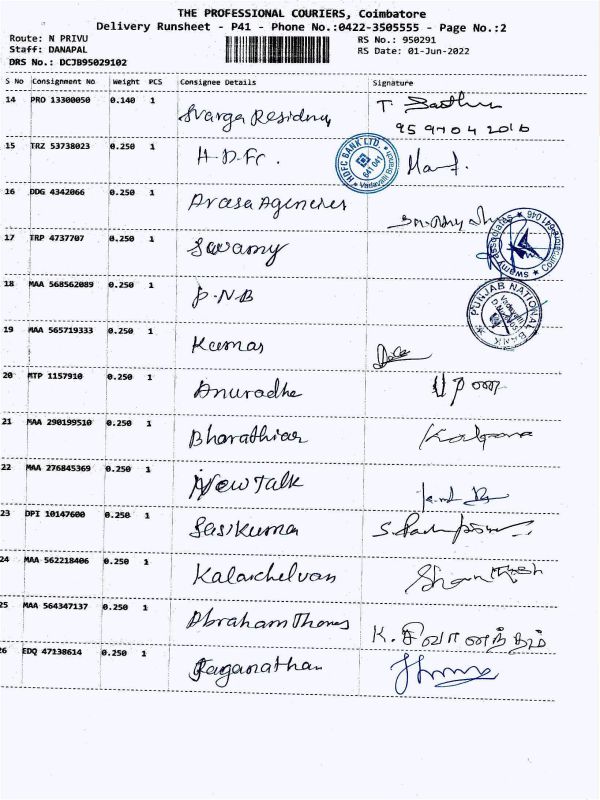 THE PROFESSIONAL COURIERS, Coimbatore
Delivery Runsheet - P41 - Phone No.:0422-3505555 - Page No.:2
Route: N PRIVU
Staff: DANAPAL
DRS No.: DCJB95029102
RS No.: 950291
RS Date: 01-Jun-2022
S No Consignment No Weight PCS Consignee Details Signature
14 PRO 13300050 0.140 1 Svarga Residency T.
15 TRZ 53738023 0.250 1 H.D.Fc. HDFC BANK LTD. 641 041 Vadavalli Branch
16 DDG 4342066 0.250 1 Arasa Agencies
17 TRP 4737707 0.250 1 Swamy swamy associates Coimbatore-641 046
18 MAA 568562089 0.250 1 P.N.B PUNJAB NATIONAL BANK
19 MAA 565719333 0.250 1 Kumar
20 MTP 1157910 0.250 1 Anuradha
21 MAA 290199510 0.250 1 Bharathiar Kalpana
22 MAA 276845369 0.250 1 New Talk
23 DPI 10147600 0.250 1 Sasikumar S.
24 MAA 562218406 0.250 1 Kalaichelvan
25 MAA 564347137 0.250 1 Abraham Thomas K. சிவானந்தம்
26 EDQ 47138614 0.250 1 Jaganathan